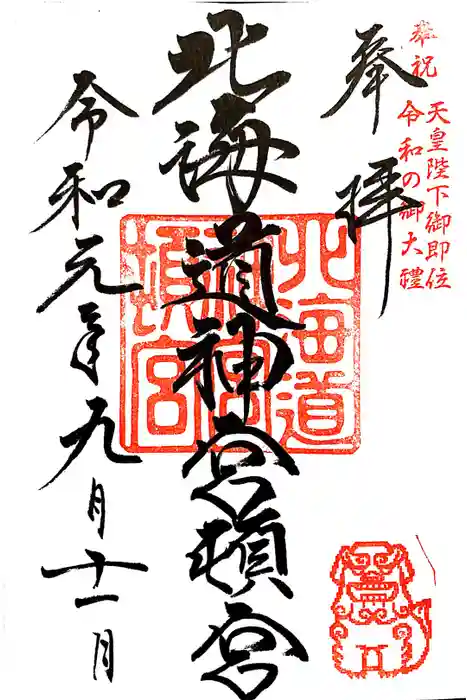 奉祝
天皇陛下御即位
令和の御大禮
奉拝
北海道神宮頓宮
北海道
神宮
頓宮
令和元年九月十一日